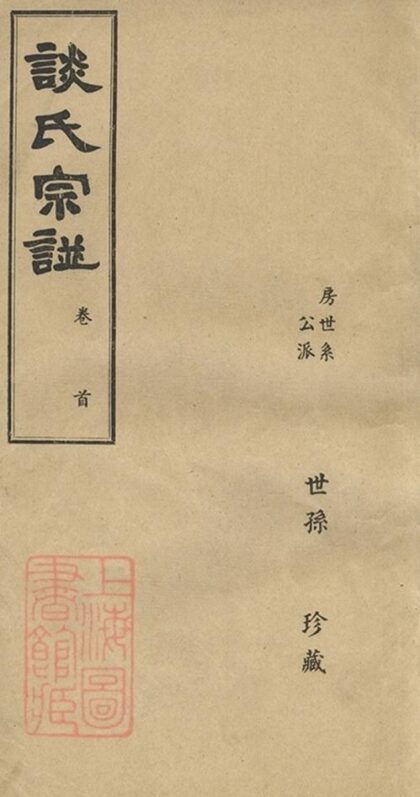 房世系
公派
世孫 珍藏
談氏宗譜
卷首
上海圖
書館臧